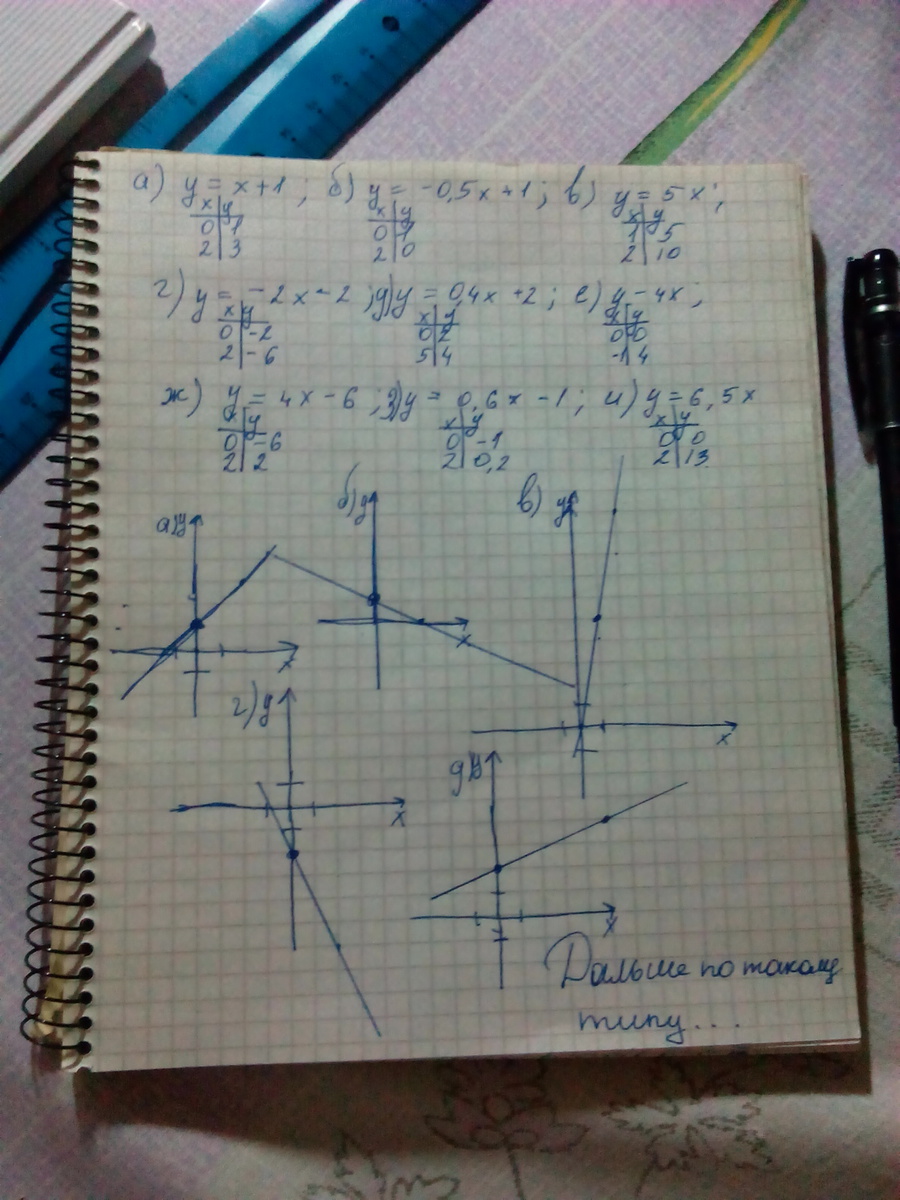 а) y = x+1 ; б) y = -0,5x+1 ; в) y = 5x ;
x|y x|y x|y
0|1 0|1 1|5
2|3 2|0 2|10
г) y = -2x-2 ; д) y = 0,4x+2 ; е) y - 4x ;
x|y x|y x|y
0|-2 0|2 0|0
2|-6 5|4 -1|4
ж) y = 4x-6 ; з) y = 0,6x-1 ; и) y = 6,5x
x|y x|y x|y
0|-6 0|-1 0|0
2|2 2|0,2 2|13
а) y б) y в) y
x x x
г) y д) y
x x
Дальше по такому
типу...